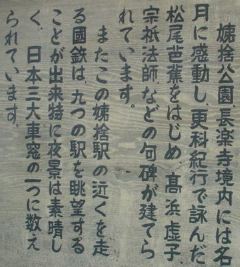 姨捨公園長楽寺境内には名
月に感動し、更科紀行で詠んだ
松尾芭蕉をはじめ、高浜虚子、
宗祇法師などの句碑が建てら
れています。
またこの姨捨駅の近くを走
る國鉄は、九つの駅を眺望する
ことが出来特に夜景は素晴し
く、日本三大車窓の一つに数え
られています。